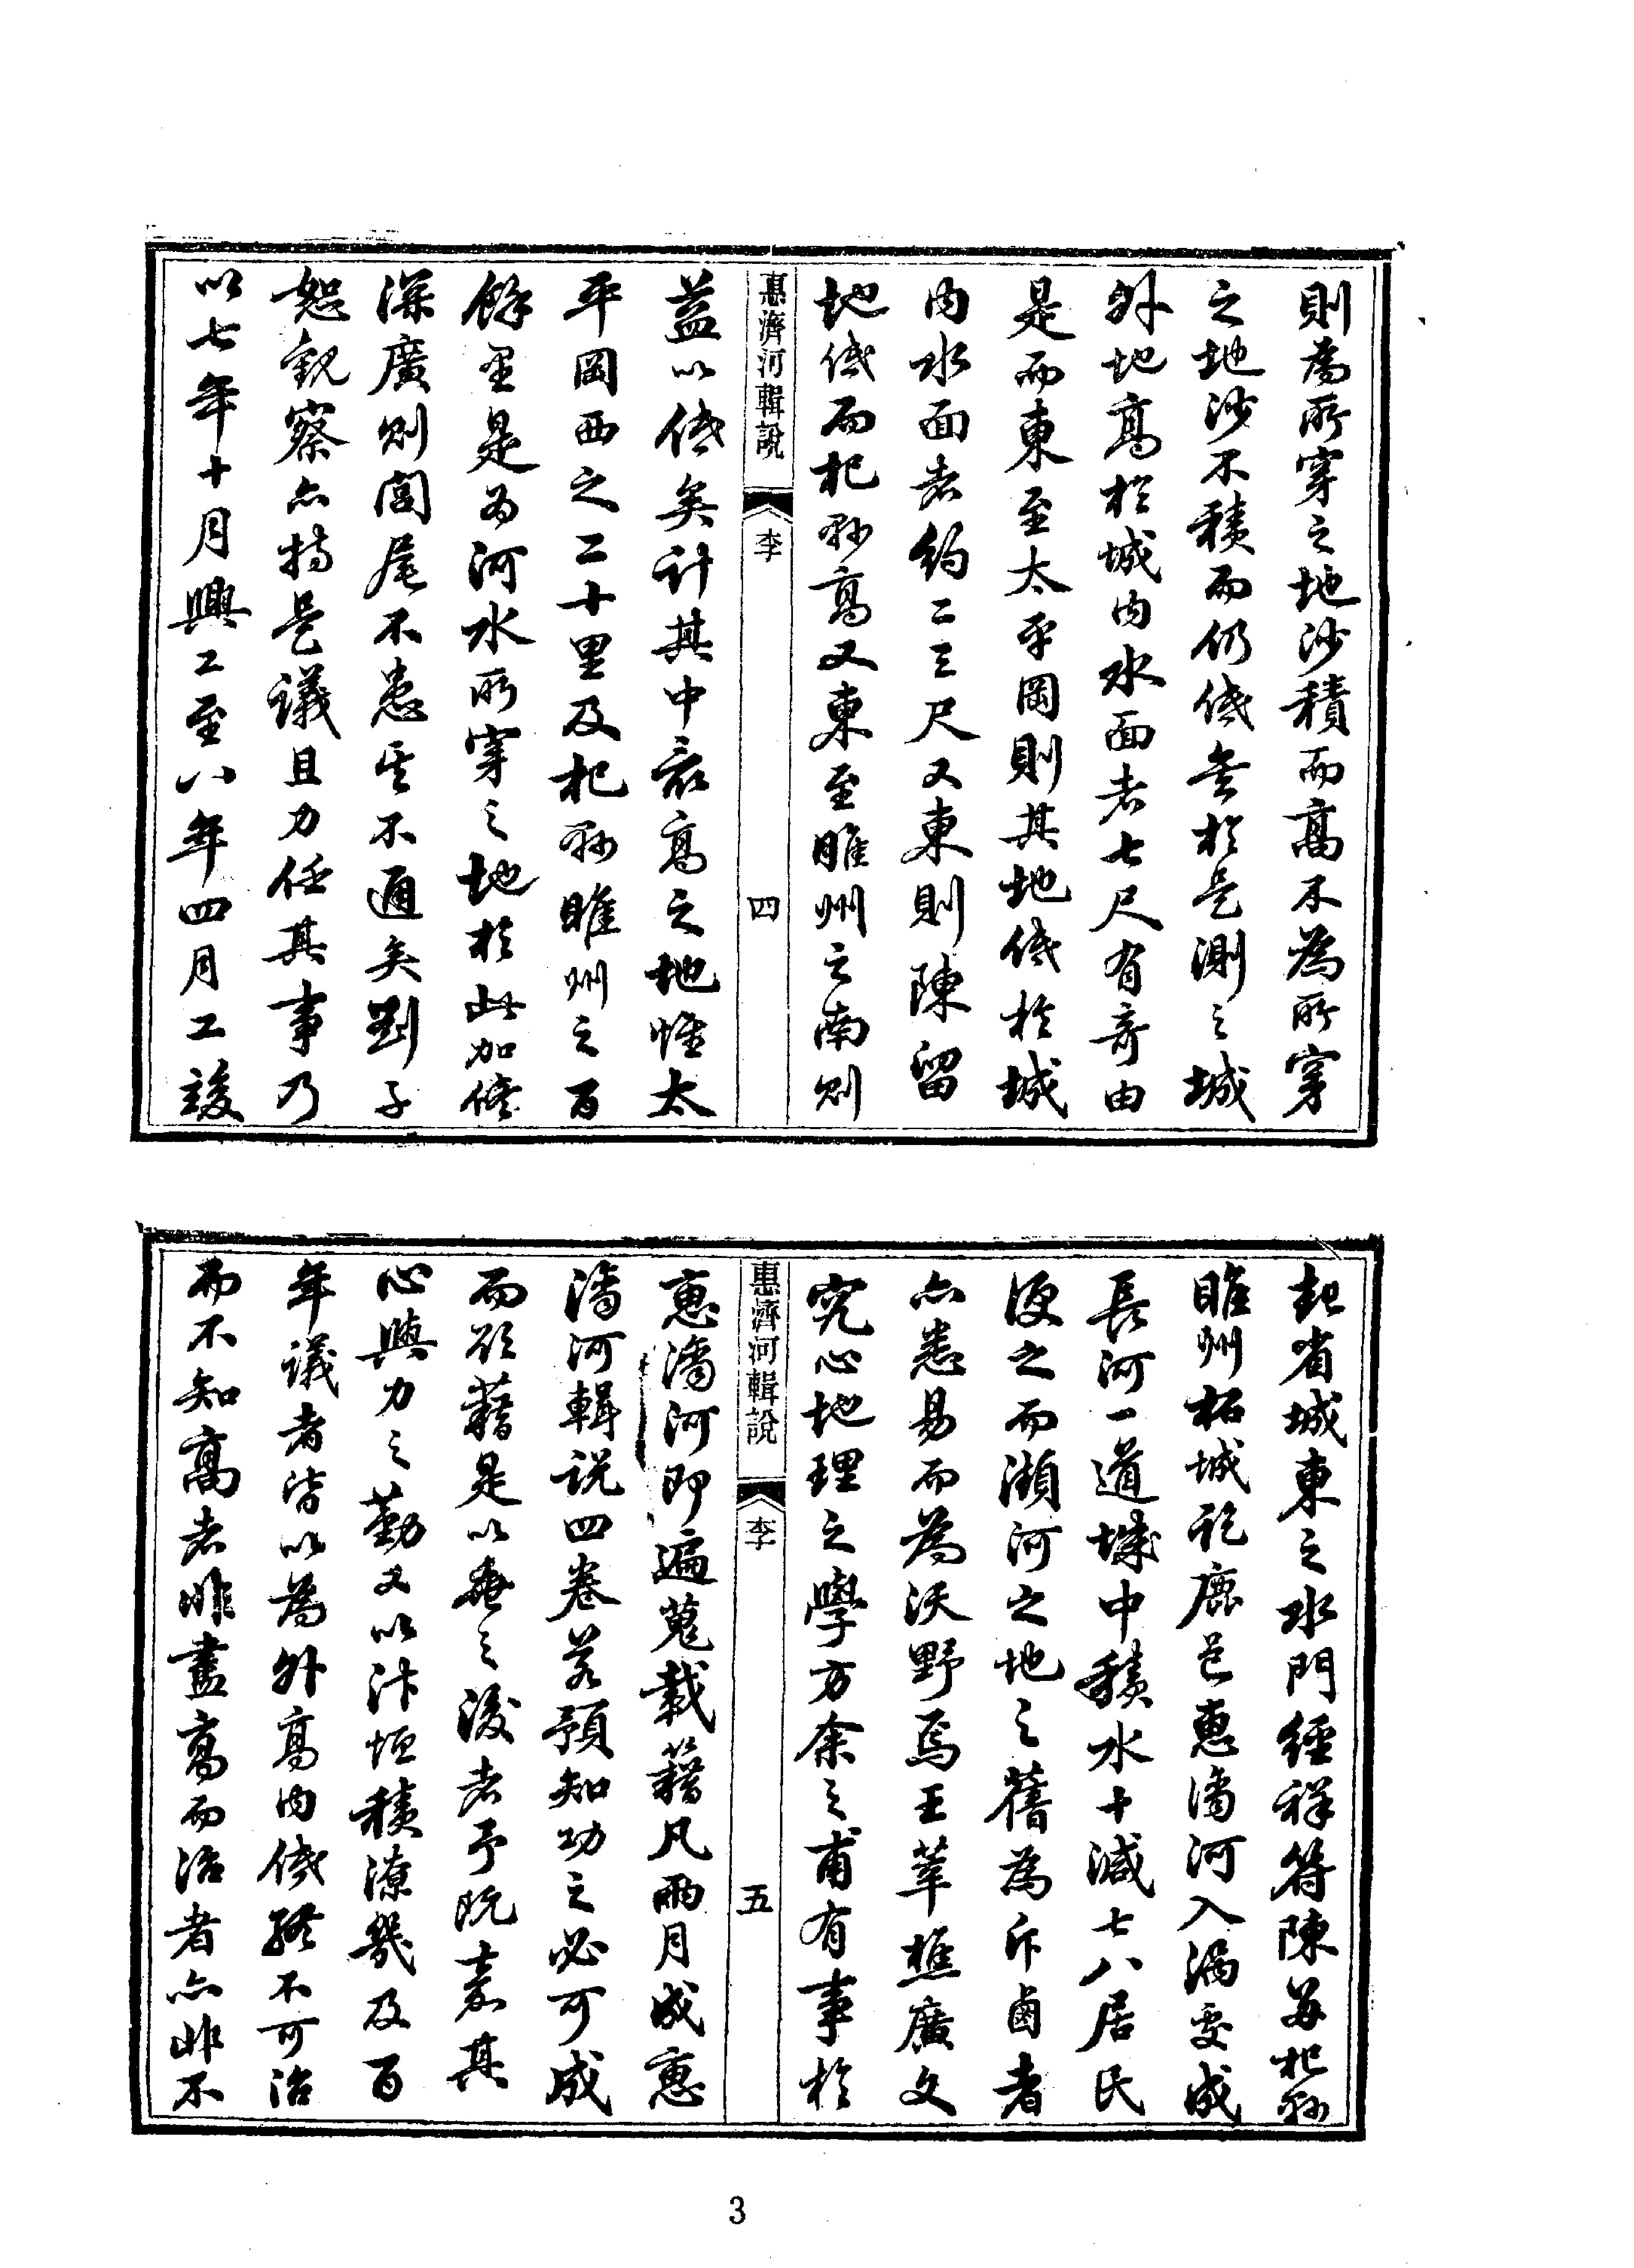 則為所穿之地沙積而高不為所穿
之地沙不積而仍低無於是測之城
外地高於城內水面者七尺有奇由
是而東至太平岡則其地低於城
內水面者約二三尺又東則陳留
地低而杞縣高又東至睢州之南則
惠濟河輯說 李 四
益以低矣計其中最高之地惟太
平岡西之二十里及杞縣睢州之百
餘里是為河水所穿之地於此加修
深廣則閭尾不患其不通矣劉子
恕觀察亦持是議且力任其事乃
以七年十月興工至八年四月工竣
起省城東之水門經祥符陳留杞縣
睢州柘城訖鹿邑惠濟河入渦處成
長河一道城中積水十減七八居民
便之而瀕河之地之舊為斥鹵者
亦悉易而為沃野焉王莘樵廣文
究心地理之學方余之甫有事於
惠濟河輯說 李 五
惠濟河即遍蒐載籍凡兩月成惠
濟河輯說四卷若預知功之必可成
而欲藉是以垂之後者予既嘉其
心與力之勤又以汴垣積潦幾及百
年議者皆以為外高內低終不可治
而不知高者非盡高而治者亦非不
3